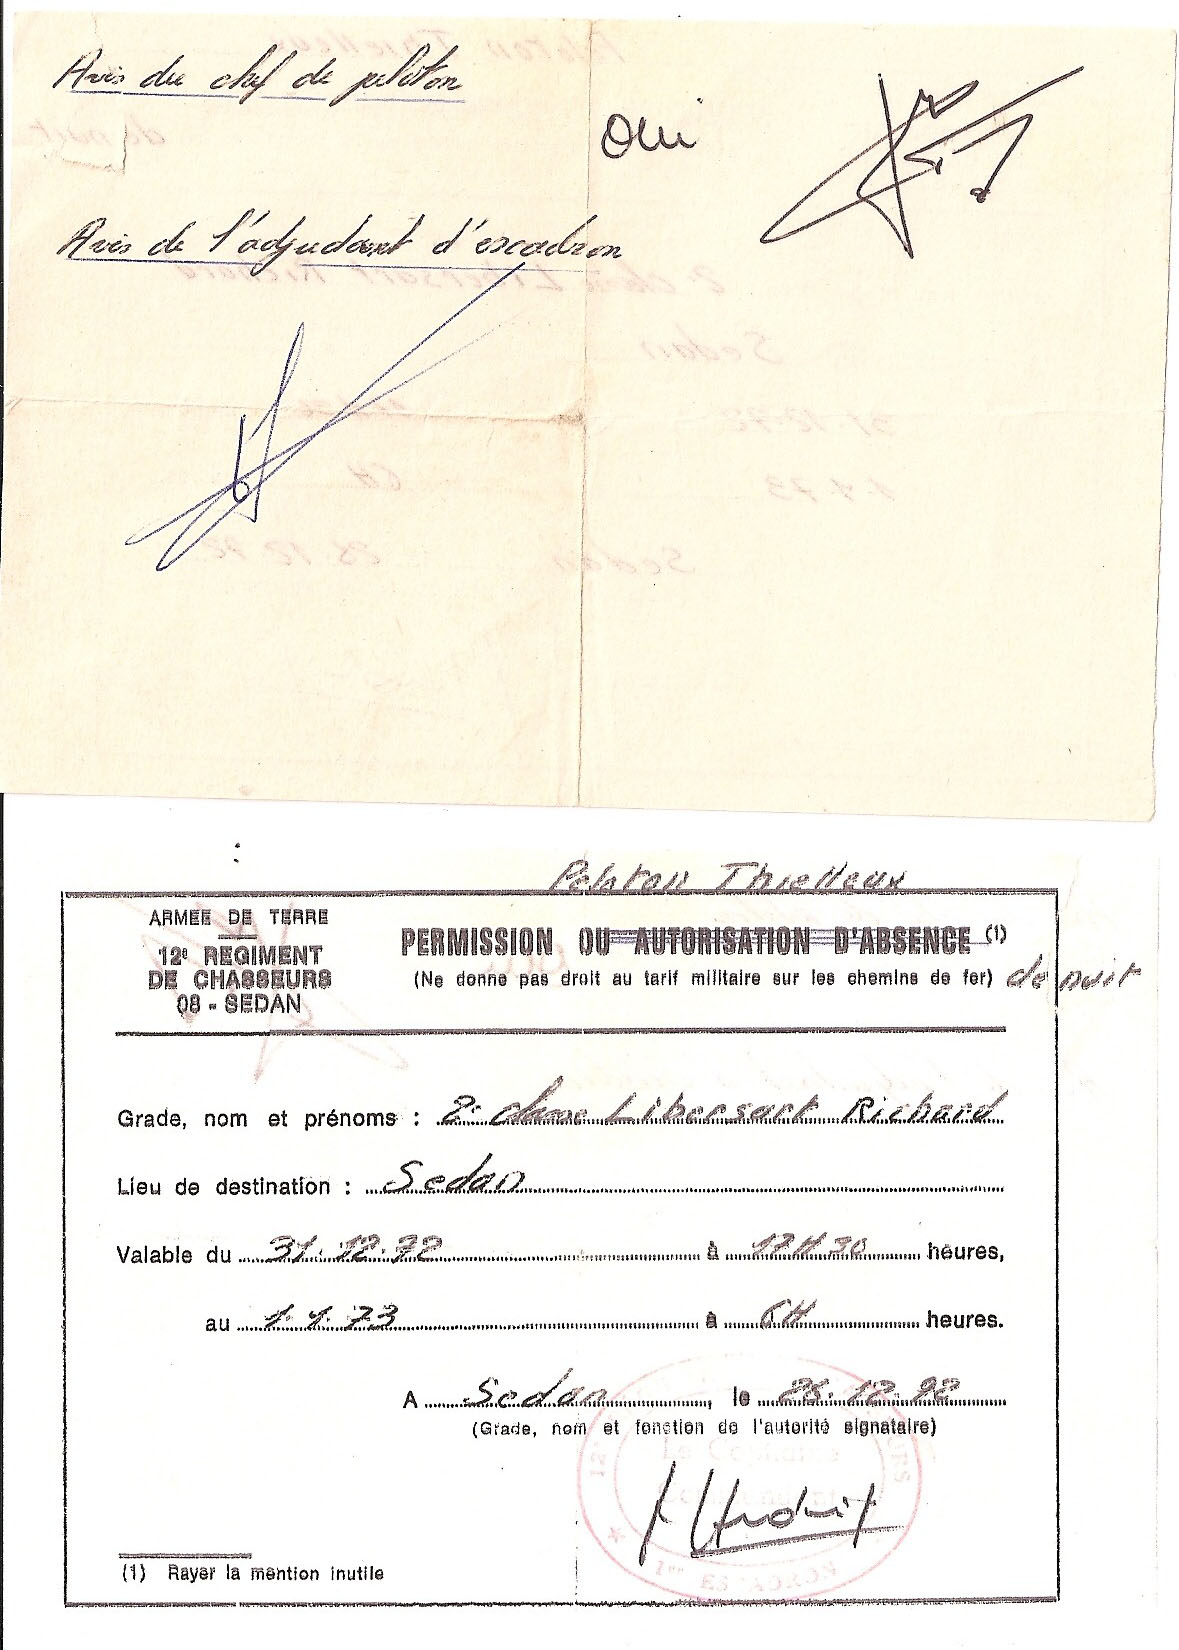 Avis du chef de peloton
oui
Avis de l'adjudant d'escadron
Peloton Thielleux
ARMEE DE TERRE
12e REGIMENT
DE CHASSEURS
08 - SEDAN
PERMISSION OU AUTORISATION D'ABSENCE (1)
(Ne donne pas droit au tarif militaire sur les chemins de fer) de nuit
Grade, nom et prénoms : 2e classe Libersart Richard
Lieu de destination : Sedan
Valable du 31.12.72 à 17H30 heures,
au 1.1.73 à 6H heures.
A Sedan, le 28.12.72
(Grade, nom et fonction de l'autorité signataire)
Le Capitaine
1er ESCADRON
(1) Rayer la mention inutile